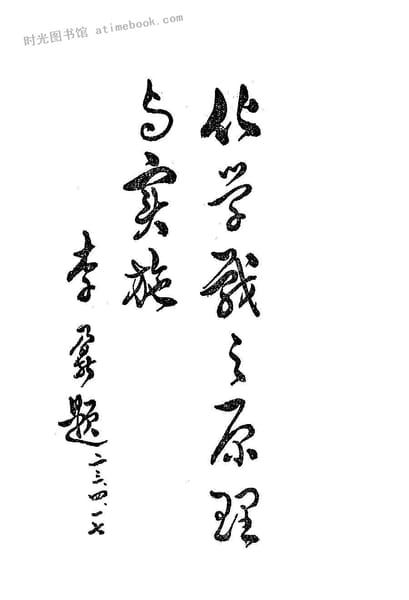 时光图书馆 atimebook.com
化学戰之原理
与实施
李鼐题
二三、四、一七